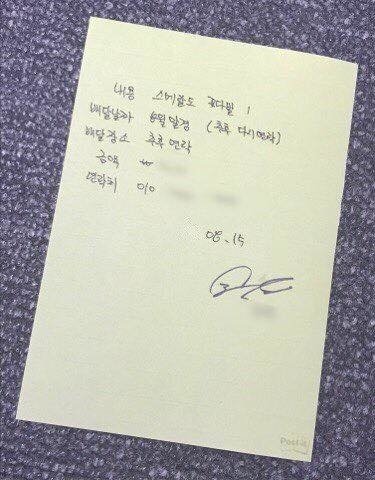 내용 스메랄도 꽃다발 1
배달날짜 6월 일경 (추후 다시 연락)
배달장소 추후 연락
금액 ₩
연락처 010
08.15
Post-it